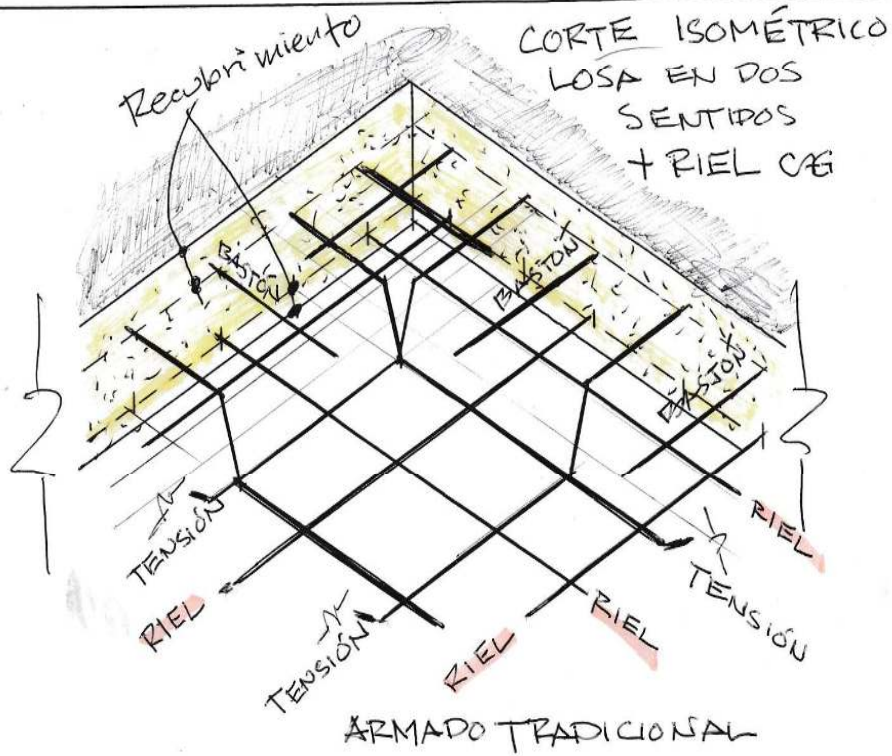 Recubrimiento
CORTE ISOMÉTRICO
LOSA EN DOS
SENTIDOS
+ RIEL
BASTÓN
BASTÓN
BASTÓN
TENSIÓN
RIEL
TENSIÓN
RIEL
RIEL
TENSIÓN
RIEL
ARMADO TRADICIONAL